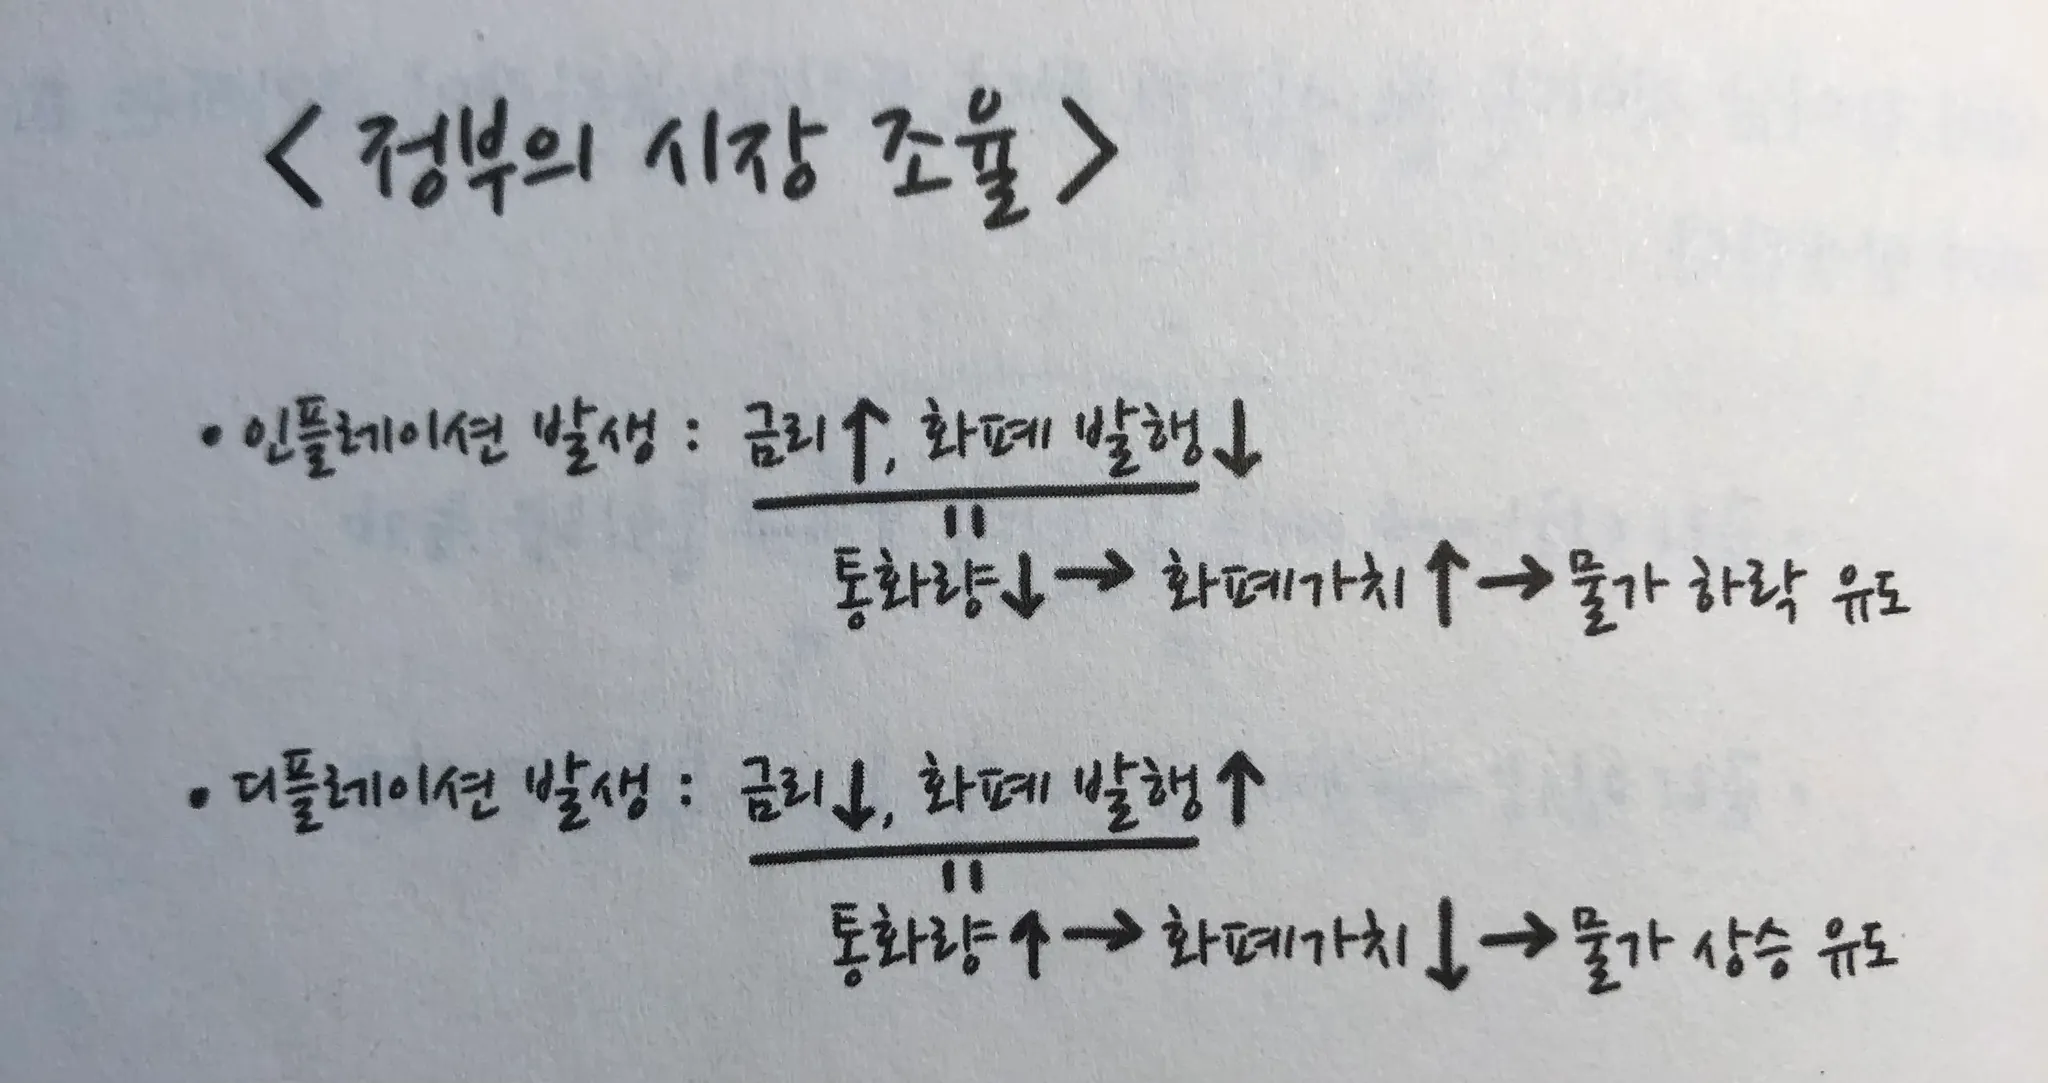 <정부의 시장 조율>
• 인플레이션 발생 : 금리↑, 화폐 발행↓
=
통화량↓→ 화폐가치↑→물가 하락 유도
• 디플레이션 발생 : 금리↓, 화폐 발행↑
=
통화량↑→화폐가치↓→물가 상승 유도